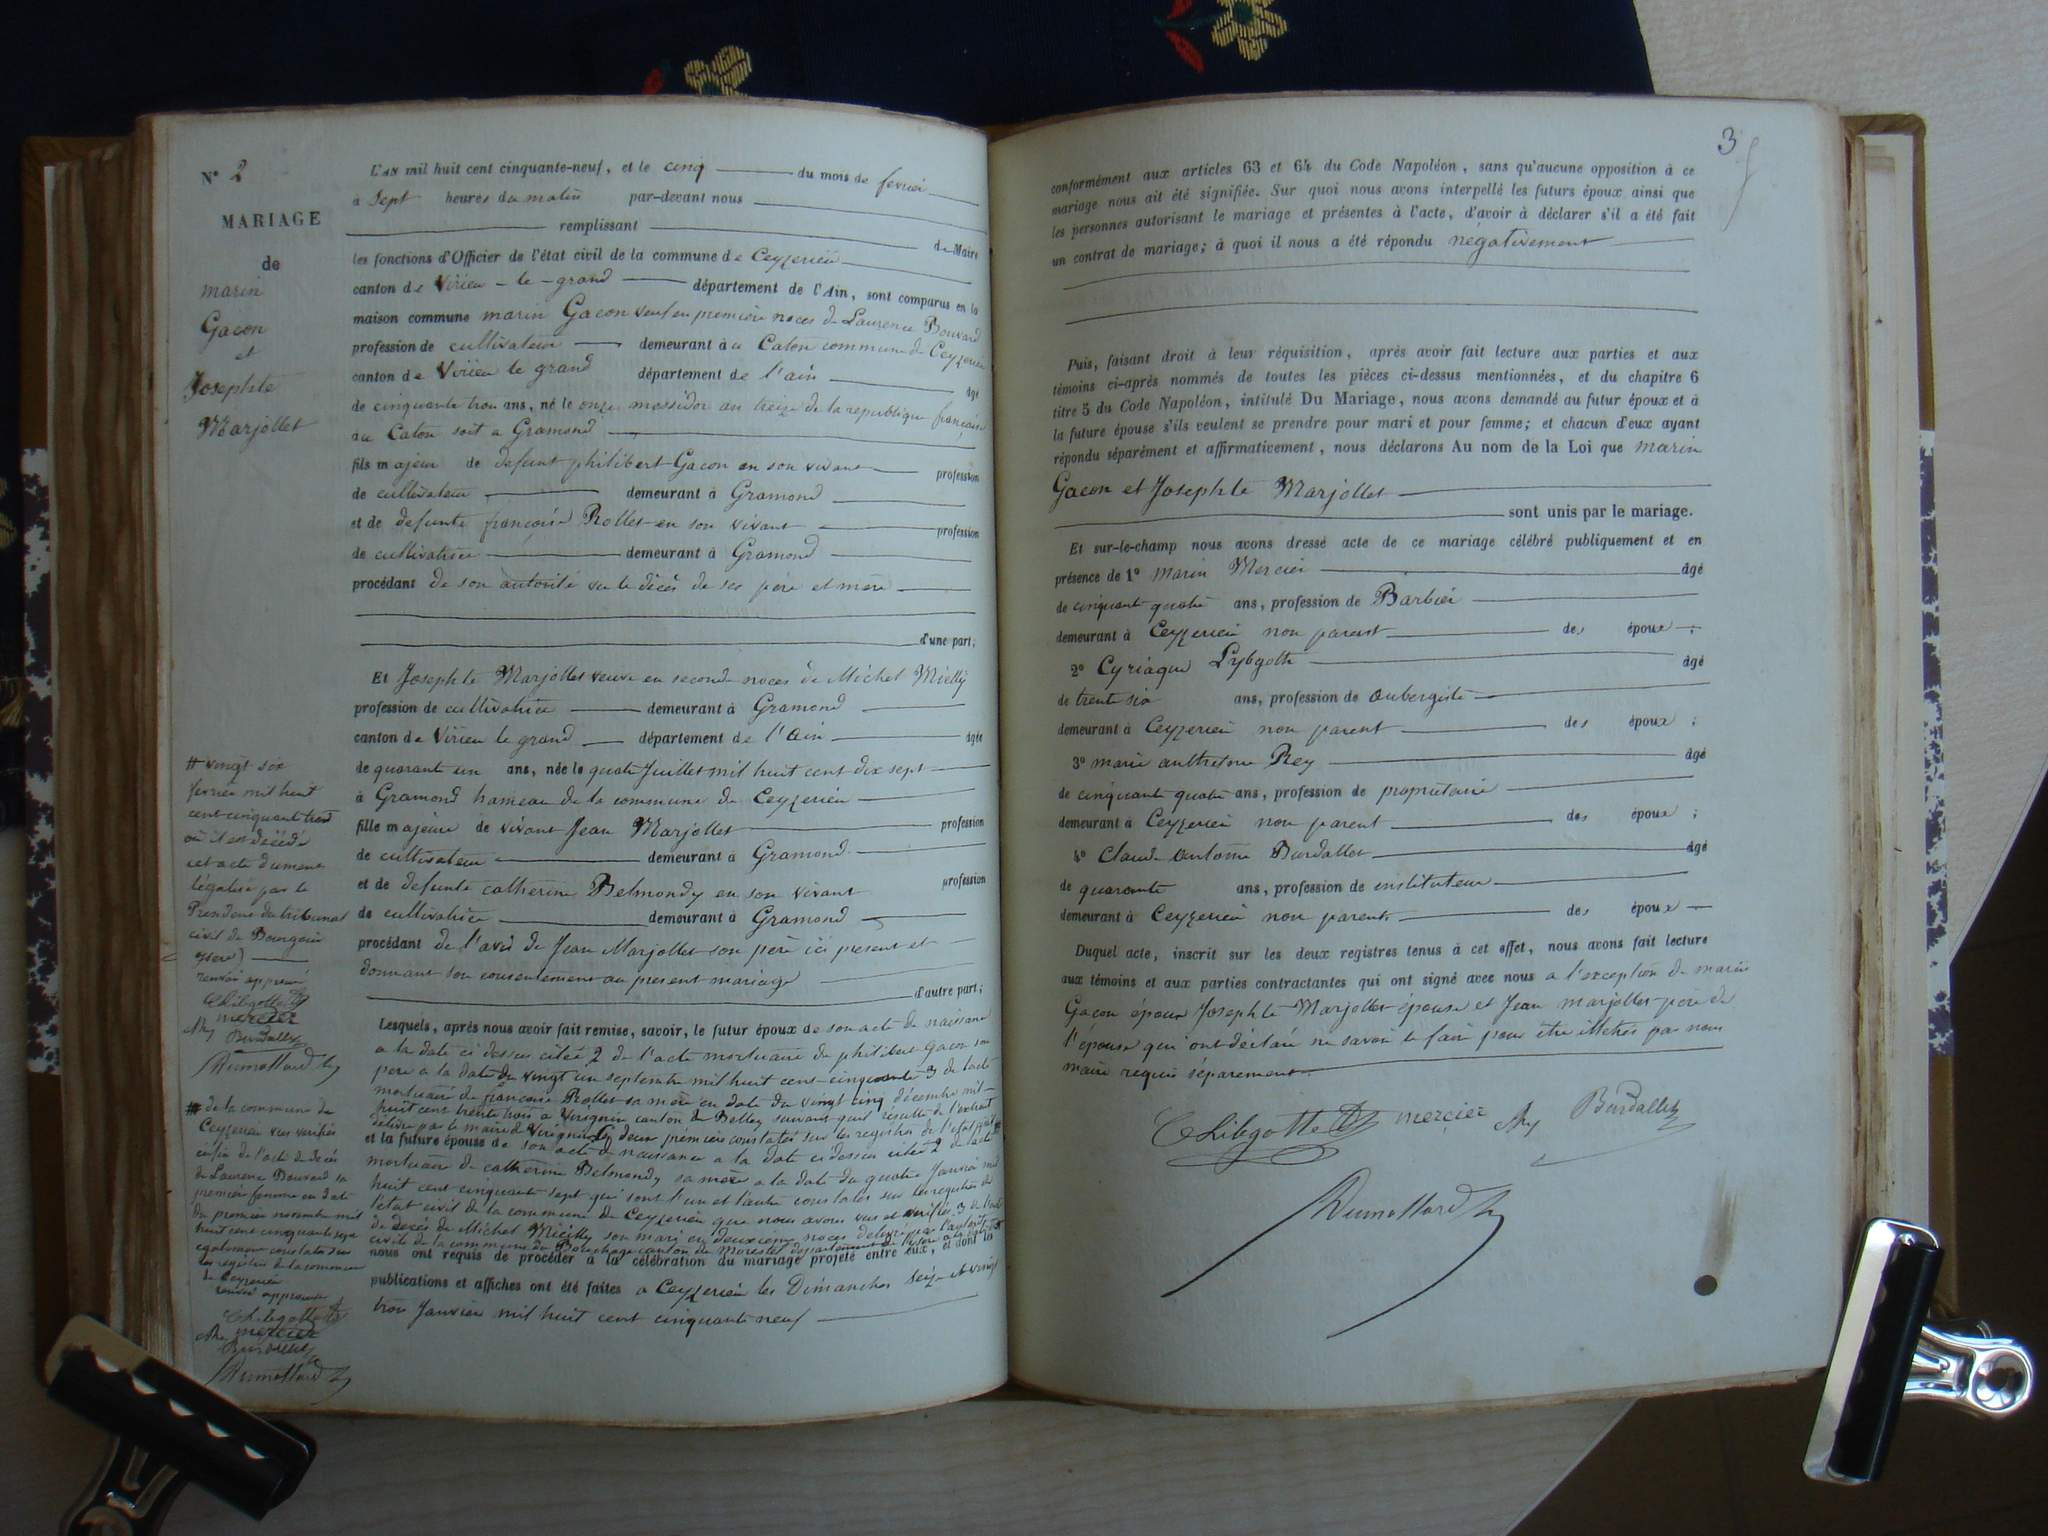 N° 2
MARIAGE
de
marin
Gacon
et
Josephte
Marjollet
L'AN mil huit cent cinquante-neuf, et le cinq du mois de fevrier
à Sept heures du matin par-devant nous
remplissant de Maire
les fonctions d'Officier de l'état civil de la commune de Ceyzerieu
canton de Virieu-le-grand département de l'Ain, sont comparus en la
maison commune marin Gacon veuf en premiere noces de Laurence Bouvard
profession de cultivateur demeurant à a Caton commune de Ceyzerieu
canton de Virieu le grand département de l'ain âgé
de cinquante trois ans, né le onze messidor an treize de la republique française
au Caton soit a Gramond
fils majeur de defunt philibert Gacon en son vivant profession
de cultivateur demeurant à Gramond
et de defunte françoise Rollet en son vivant profession
de cultivatrice demeurant à Gramond
procédant de son autorité vu le décès de ses père et mère
d'une part;
Et Josephte Marjollet veuve en seconde noces de Michel Mieilly
profession de cultivatrice demeurant à Gramond
canton de Virieu le grand département de l'ain âgée
de quarante un ans, née le quatre Juillet mil huit cent dix sept
à Gramond hameau de la commune de Ceyzerieu
fille majeure de vivant Jean Marjollet profession
de cultivateur demeurant à Gramond
et de defunte catherine Belmondy en son vivant profession
de cultivatrice demeurant à Gramond
procédant de l'avis de Jean Marjollet son père ici present et
donnant son consentement au present mariage
d'autre part;
Lesquels, après nous avoir fait remise, savoir, le futur époux de son acte de naissance
a la date ci dessus citée 2 de l'acte mortuaire de philibert Gacon son
pere a la date du vingt un septembre mil huit cent cinquante 3 de l'acte
mortuaire de françoise Rollet sa mère en date du vingt cinq décembre mil
huit cent trente trois a Virignin canton de Belley suivant quil résulte de l'extrait
délivré par le maire de Virignin les deux premiers constatés sur les registres de l'etat civil
et la future épouse de son acte de naissance a la date ci dessus citée 2 de l'acte
mortuaire de catherine Belmondy sa mère a la date du quatre Janvier mil
huit cent cinquante sept qui sont l'un et l'autre constatés sur les registres de
l'état civil de la commune de Ceyzerieu que nous avons vus et verifiés 3 de l'acte
de décés de Michel Mieilly son mari en deuxieme noces delivré par l'autorité
civile de la commune du Bouchage canton de Morestel département de l'isere a la date du
nous ont requis de procéder à la célébration du mariage projeté entre eux, et dont les
publications et affiches ont été faites a Ceyzerieu les Dimanches seize et vingt
trois Janvier mil huit cent cinquante neuf
# vingt six
fevrier mil huit
cent cinquante trois
où il est décédé
cet acte dument
légalisé par le
President du tribunal
civil de Bourgoin
isere)
renvoi approuvé
C Libgotte
mercier
Rey
Burdallet
Dumollard
# de la commune de
Ceyzerieu vus verifiés
enfin de l'acte de decés
de Laurence Bouvard sa
premiere femme en date
du premier novembre mil
huit cent cinquante sept
egalement constaté sur
les registres de la commune
de Ceyzerieu
renvoi approuvé
C Libgotte
Rey mercier
Burdallet
Dumollard
3
conformément aux articles 63 et 64 du Code Napoléon, sans qu'aucune opposition à ce
mariage nous ait été signifiée. Sur quoi nous avons interpellé les futurs époux ainsi que
les personnes autorisant le mariage et présentes à l'acte, d'avoir à déclarer s'il a été fait
un contrat de mariage; à quoi il nous a été répondu négativement
Puis, faisant droit à leur réquisition, après avoir fait lecture aux parties et aux
témoins ci-après nommés de toutes les pièces ci-dessus mentionnées, et du chapitre 6
titre 5 du Code Napoléon, intitulé Du Mariage, nous avons demandé au futur époux et à
la future épouse s'ils veulent se prendre pour mari et pour femme; et chacun d'eux ayant
répondu séparément et affirmativement, nous déclarons Au nom de la Loi que marin
Gacon et Josephte Marjollet
sont unis par le mariage.
Et sur-le-champ nous avons dressé acte de ce mariage célébré publiquement et en
présence de 1° marin Mercier âgé
de cinquante quatre ans, profession de Barbier
demeurant à Ceyzerieu non parent des époux ;
2° Cyriaque Lybgott âgé
de trente six ans, profession de aubergiste
demeurant à Ceyzerieu non parent des époux ;
3° marie anthelme Rey âgé
de cinquante quatre ans, profession de propriétaire
demeurant à Ceyzerieu non parent des époux ;
4° Claude antoine Burdallet âgé
de quarante ans, profession de instituteur
demeurant à Ceyzerieu non parent des époux
Duquel acte, inscrit sur les deux registres tenus à cet effet, nous avons fait lecture
aux témoins et aux parties contractantes qui ont signé avec nous a l'exception de marin
Gacon époux Josephte Marjollet épouse et Jean marjollet père de
l'épouse qui ont déclaré ne savoir le faire pour être illettrés par nous
maire requis séparement
C Libgotte mercier Rey Burdallet
Dumollard